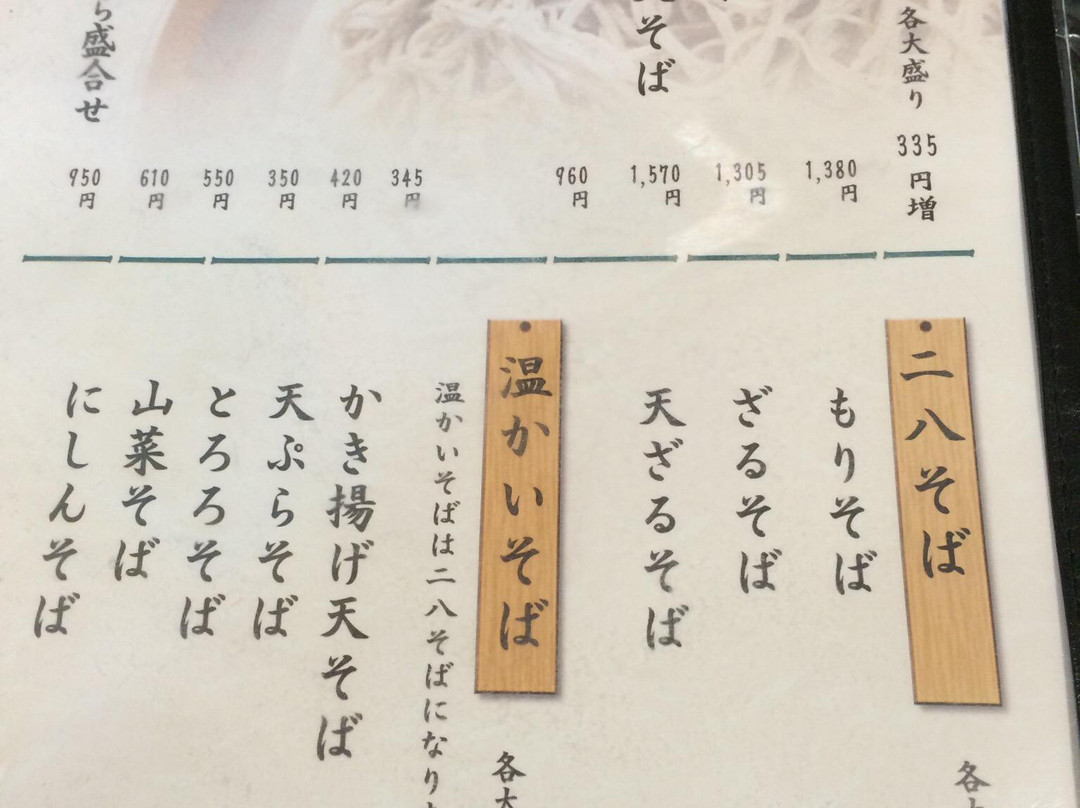 各大盛り 335円増
1,380円
1,305円
そば 1,570円
960円
345円
420円
350円
550円
610円
盛合せ 950円
二八そば
各
もりそば
ざるそば
天ざるそば
温かいそば
各大
温かいそばは二八そばになり
かき揚げ天そば
天ぷらそば
とろろそば
山菜そば
にしんそば